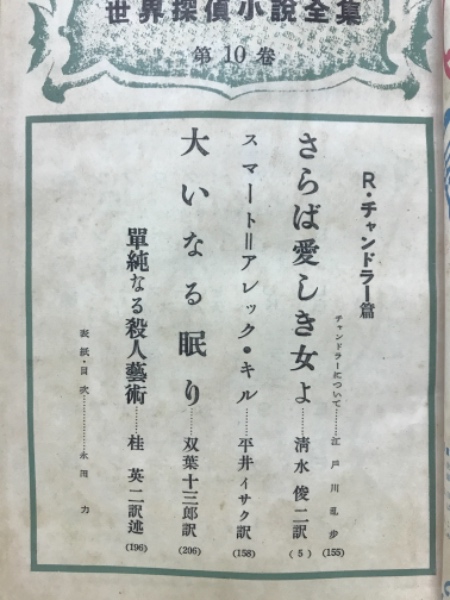 世界探偵小說全集
第10巻
R・チャンドラー篇
チャンドラーについて………江戸川乱歩(155)
さらば愛しき女よ……清水俊二訳(5)
スマート=アレック・キル……平井イサク訳(158)
大いなる眠り……双葉十三郎訳(206)
單純なる殺人藝術……桂英二訳述(196)
表紙・目次……………永田力